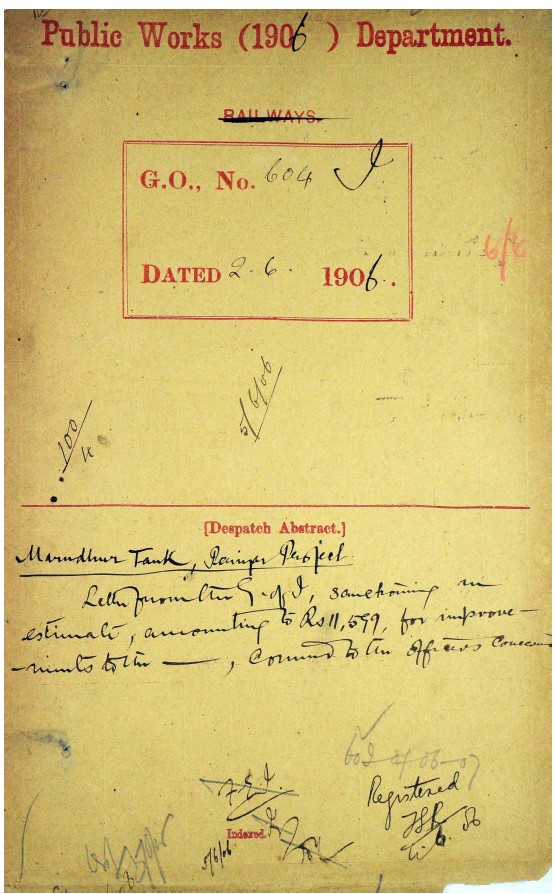 Public Works (1906) Department.
RAILWAYS.
G.O., No. 604 I
DATED 2.6. 1906.
6/6
5/6/06
100
[Despatch Abstract.]
Marudhur Tank, Project
Letter from the G. of I, sanctioning an
estimate, amounting to Rs 11,599, for improve-
-ments to the —, Commd to the officers
06-07
Registered
Indexed.
5/6/06